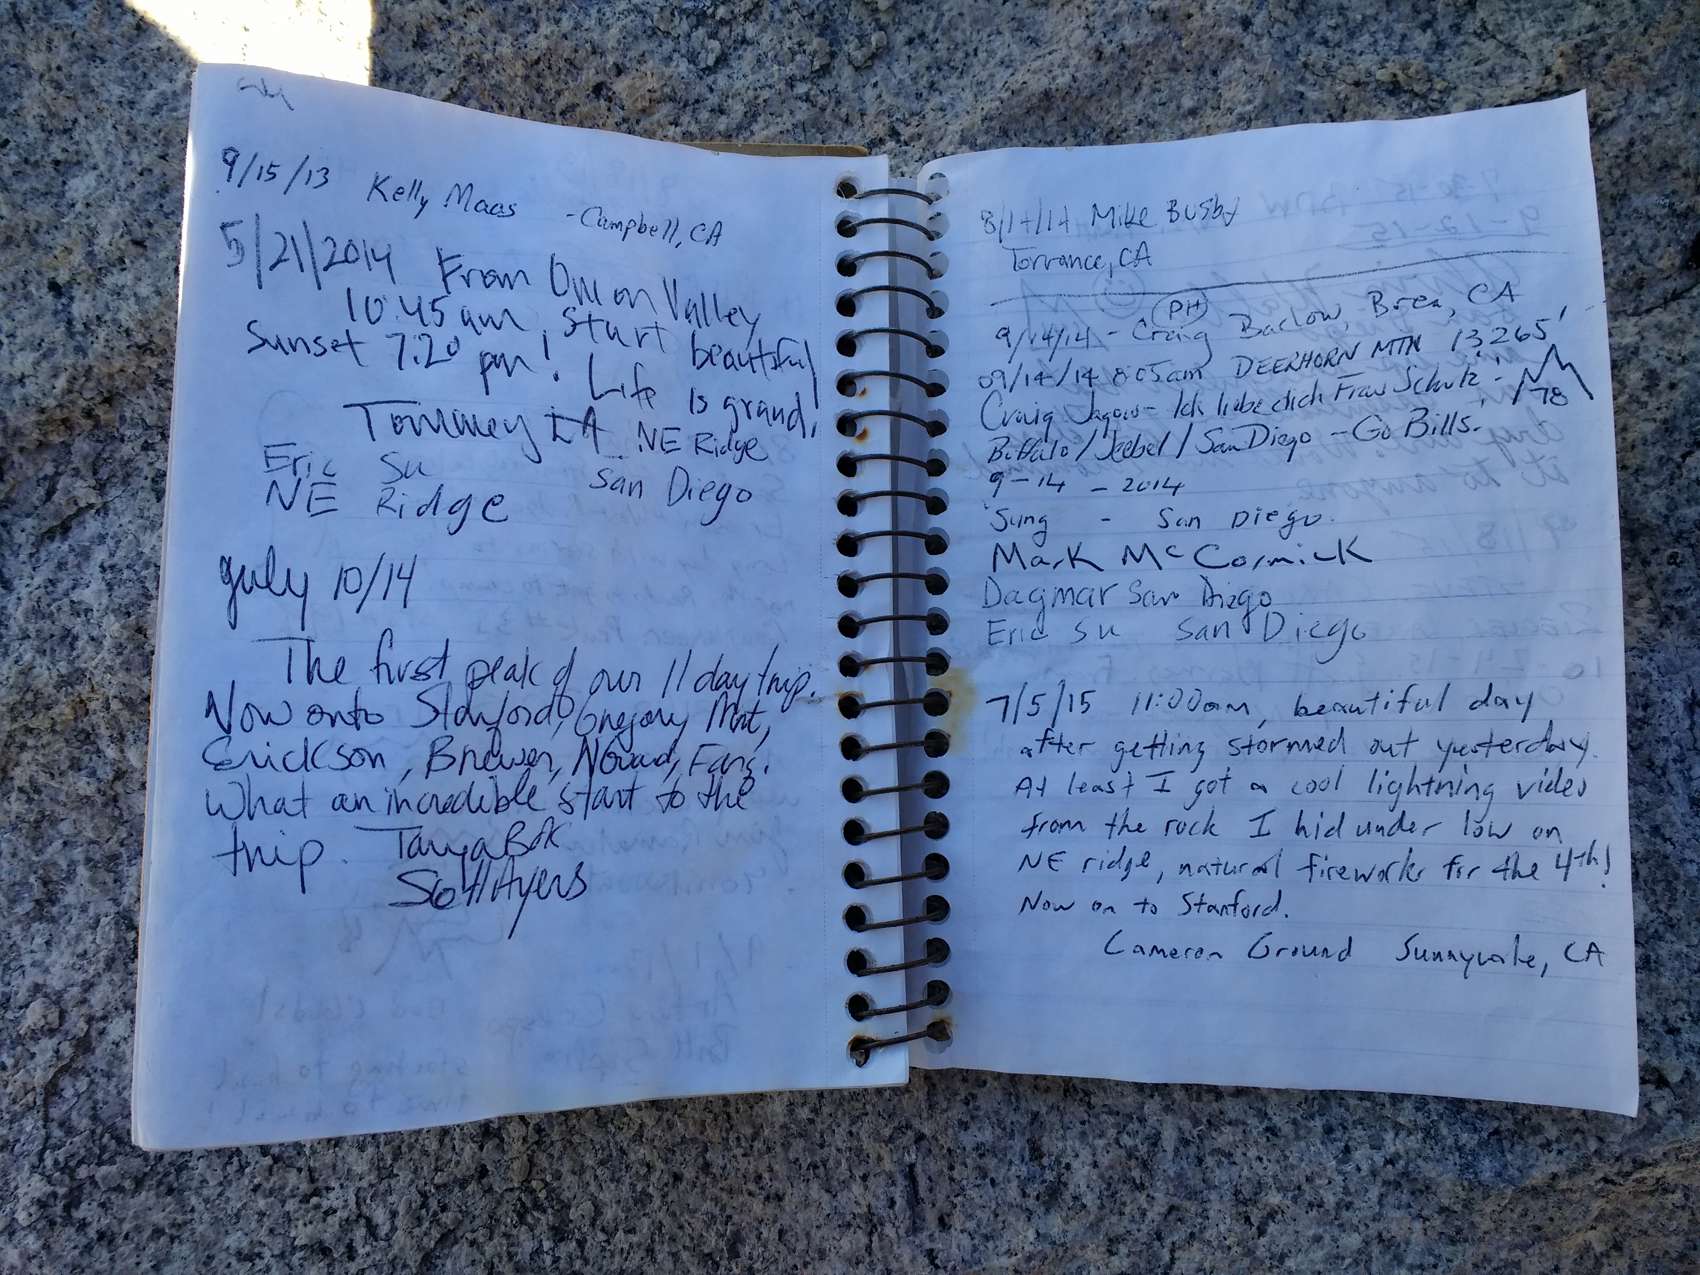 9/15/13 Kelly Maas - Campbell, CA
5/21/2014 From Onion Valley
10:45 am start beautiful
Sunset 7:20 pm! Life is grand!
Tommey NE Ridge
Eric Su San Diego
NE Ridge
July 10/14
The first peak of our 11 day trip.
Now onto Stanford, Gregory Mnt,
Erickson, Brewer, Farq.
What an incredible start to the
trip. Tanya
Scott Ayers
8/14/14 Mike Busby
Torrance, CA
PH
9/14/14 - Craig Barlow, Brea, CA
09/14/14 8:05am DEERHORN MTN 13265'
Craig - Ich liebe dich Frau Schutz!
78
Buffalo / / San Diego - Go Bills!
9-14-2014
Sung - San Diego.
Mark McCormick
Dagmar San Diego
Eric Su San Diego
7/5/15 11:00am, beautiful day
after getting stormed out yesterday.
At least I got a cool lightning video
from the rock I hid under low on
NE ridge, natural fireworks for the 4th!
Now on to Stanford.
Cameron Ground Sunnyvale, CA